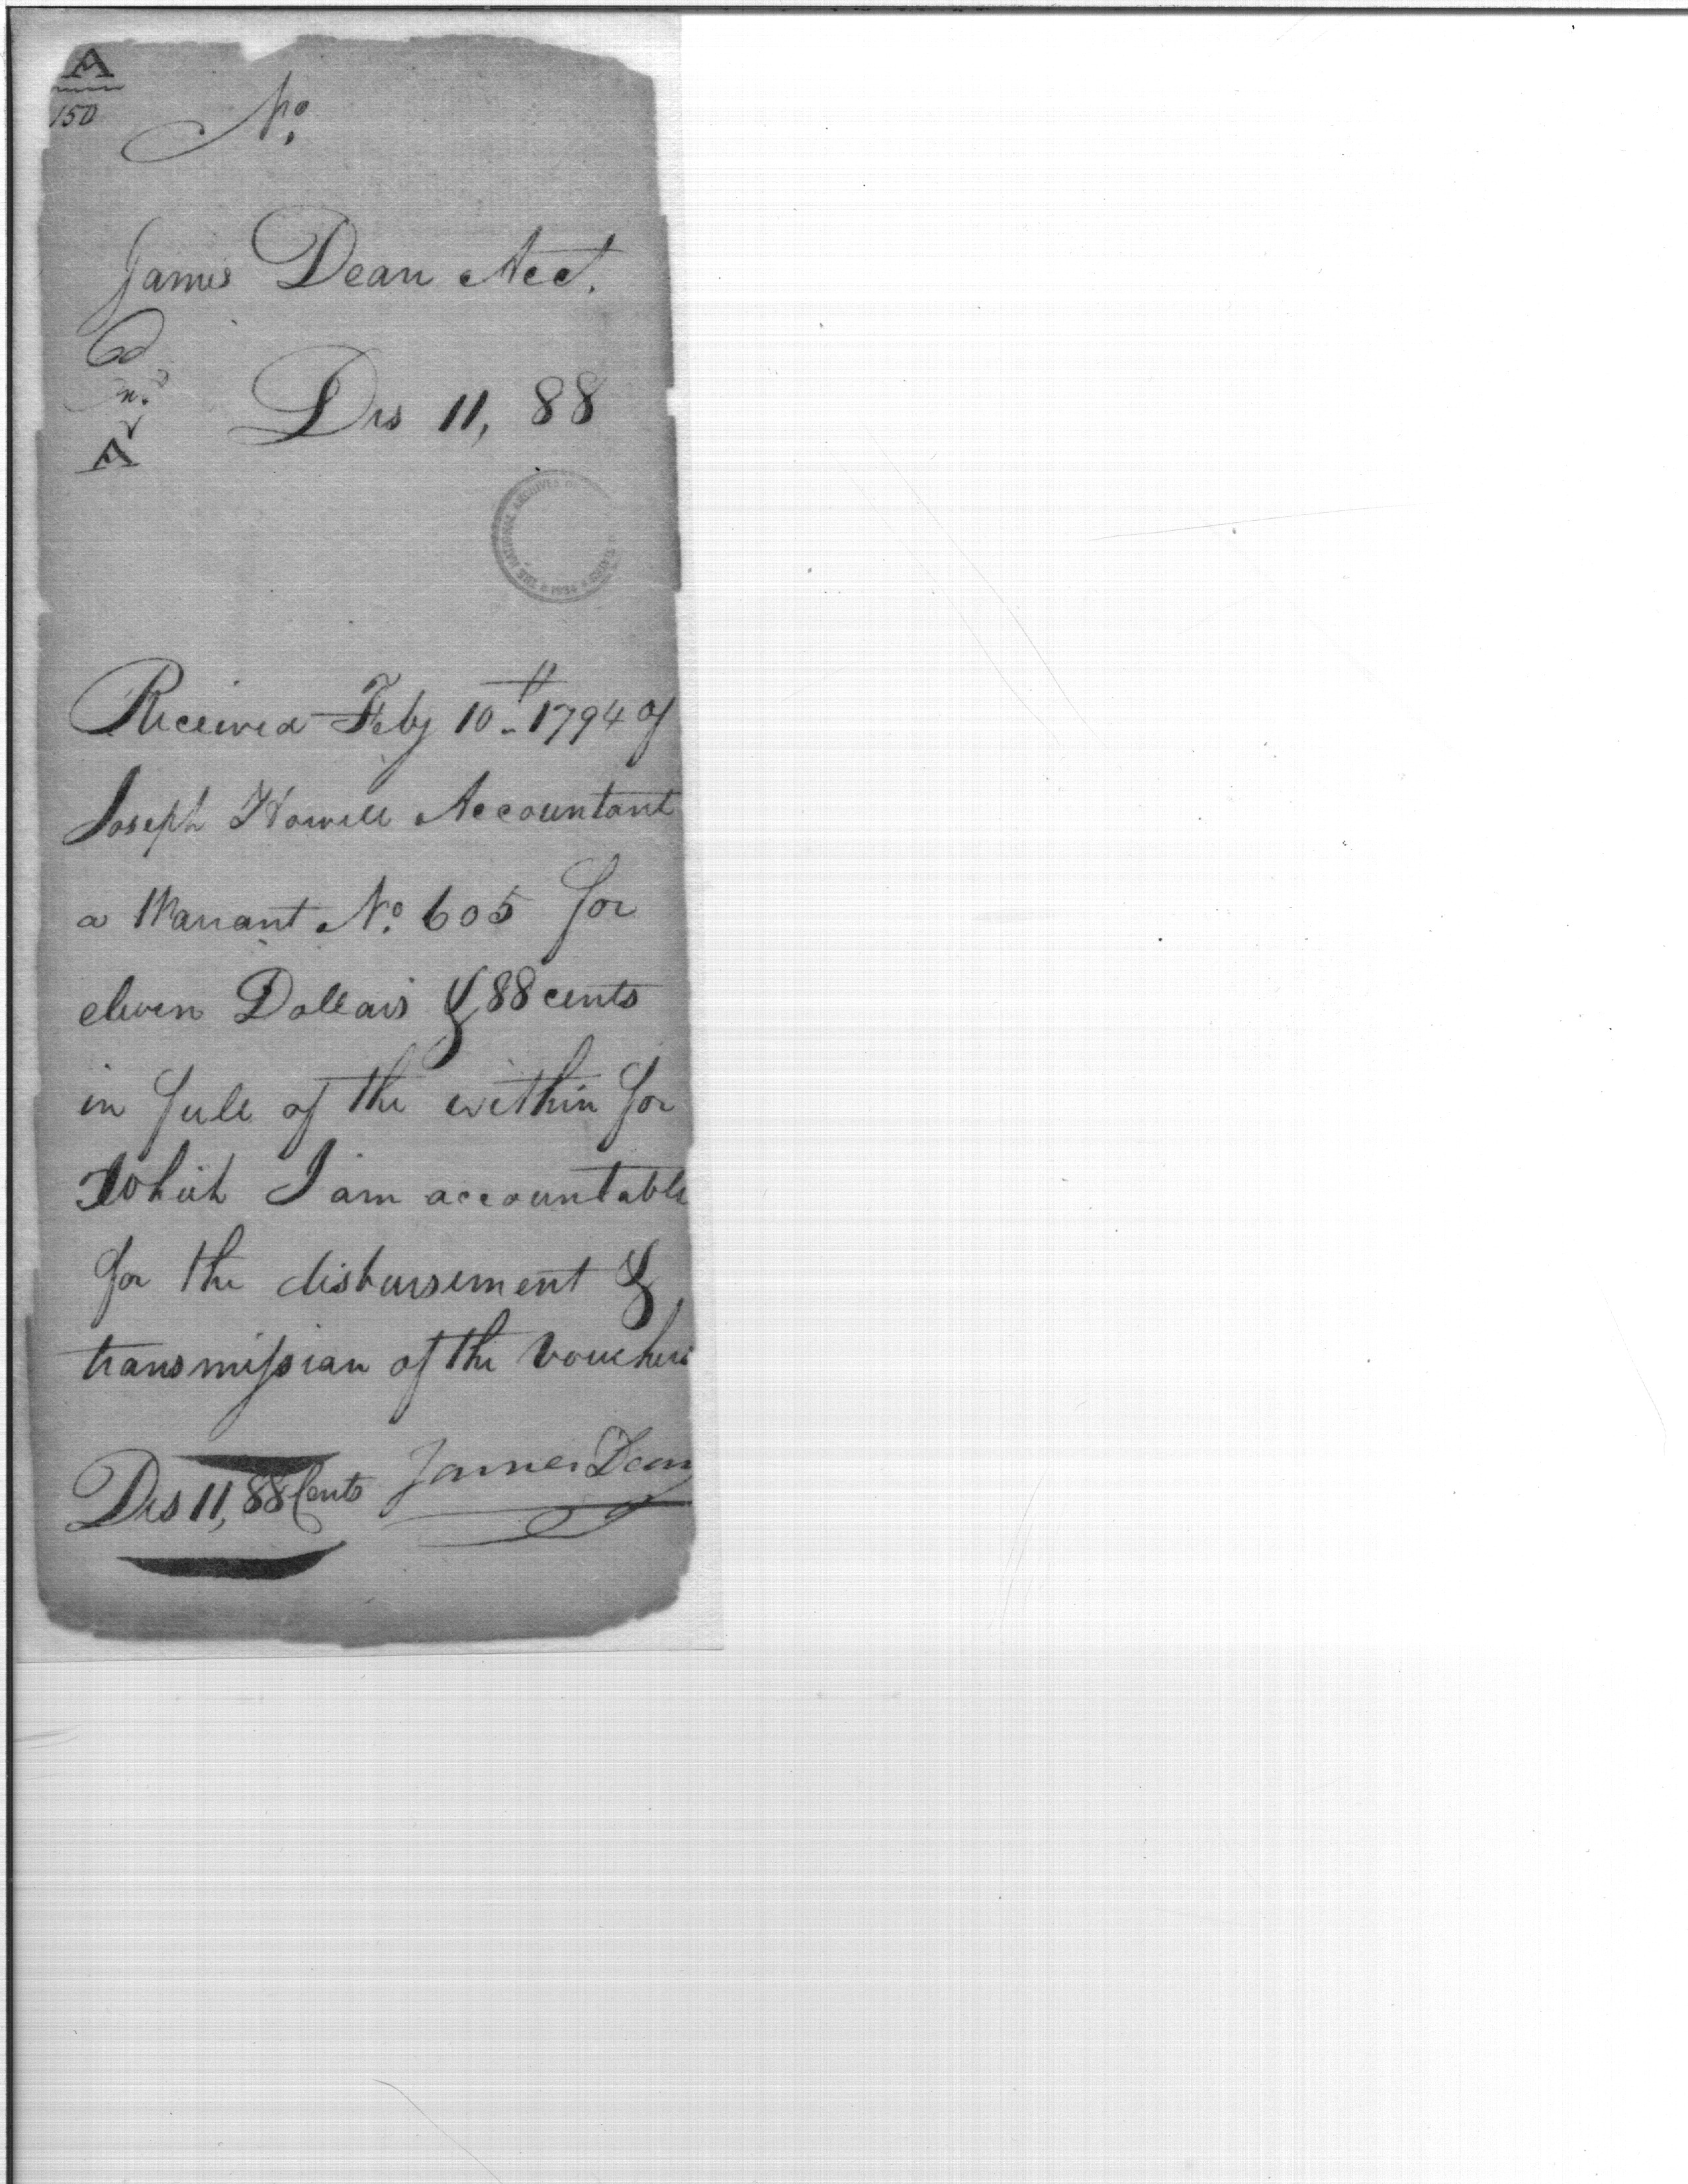 A
150
No.
James Dean Acct.
Drs 11, 88
A
THE NATIONAL ARCHIVES OF 1934
Received Feby 10th 1794 of
Joseph Howell Accountant
a Warrant No. 605 for
eleven Dollars & 88 cents
in full of the within for
Which I am accountable
for the disbursement &
transmission of the vouchers
Drs 11, 88 Cents James Dean